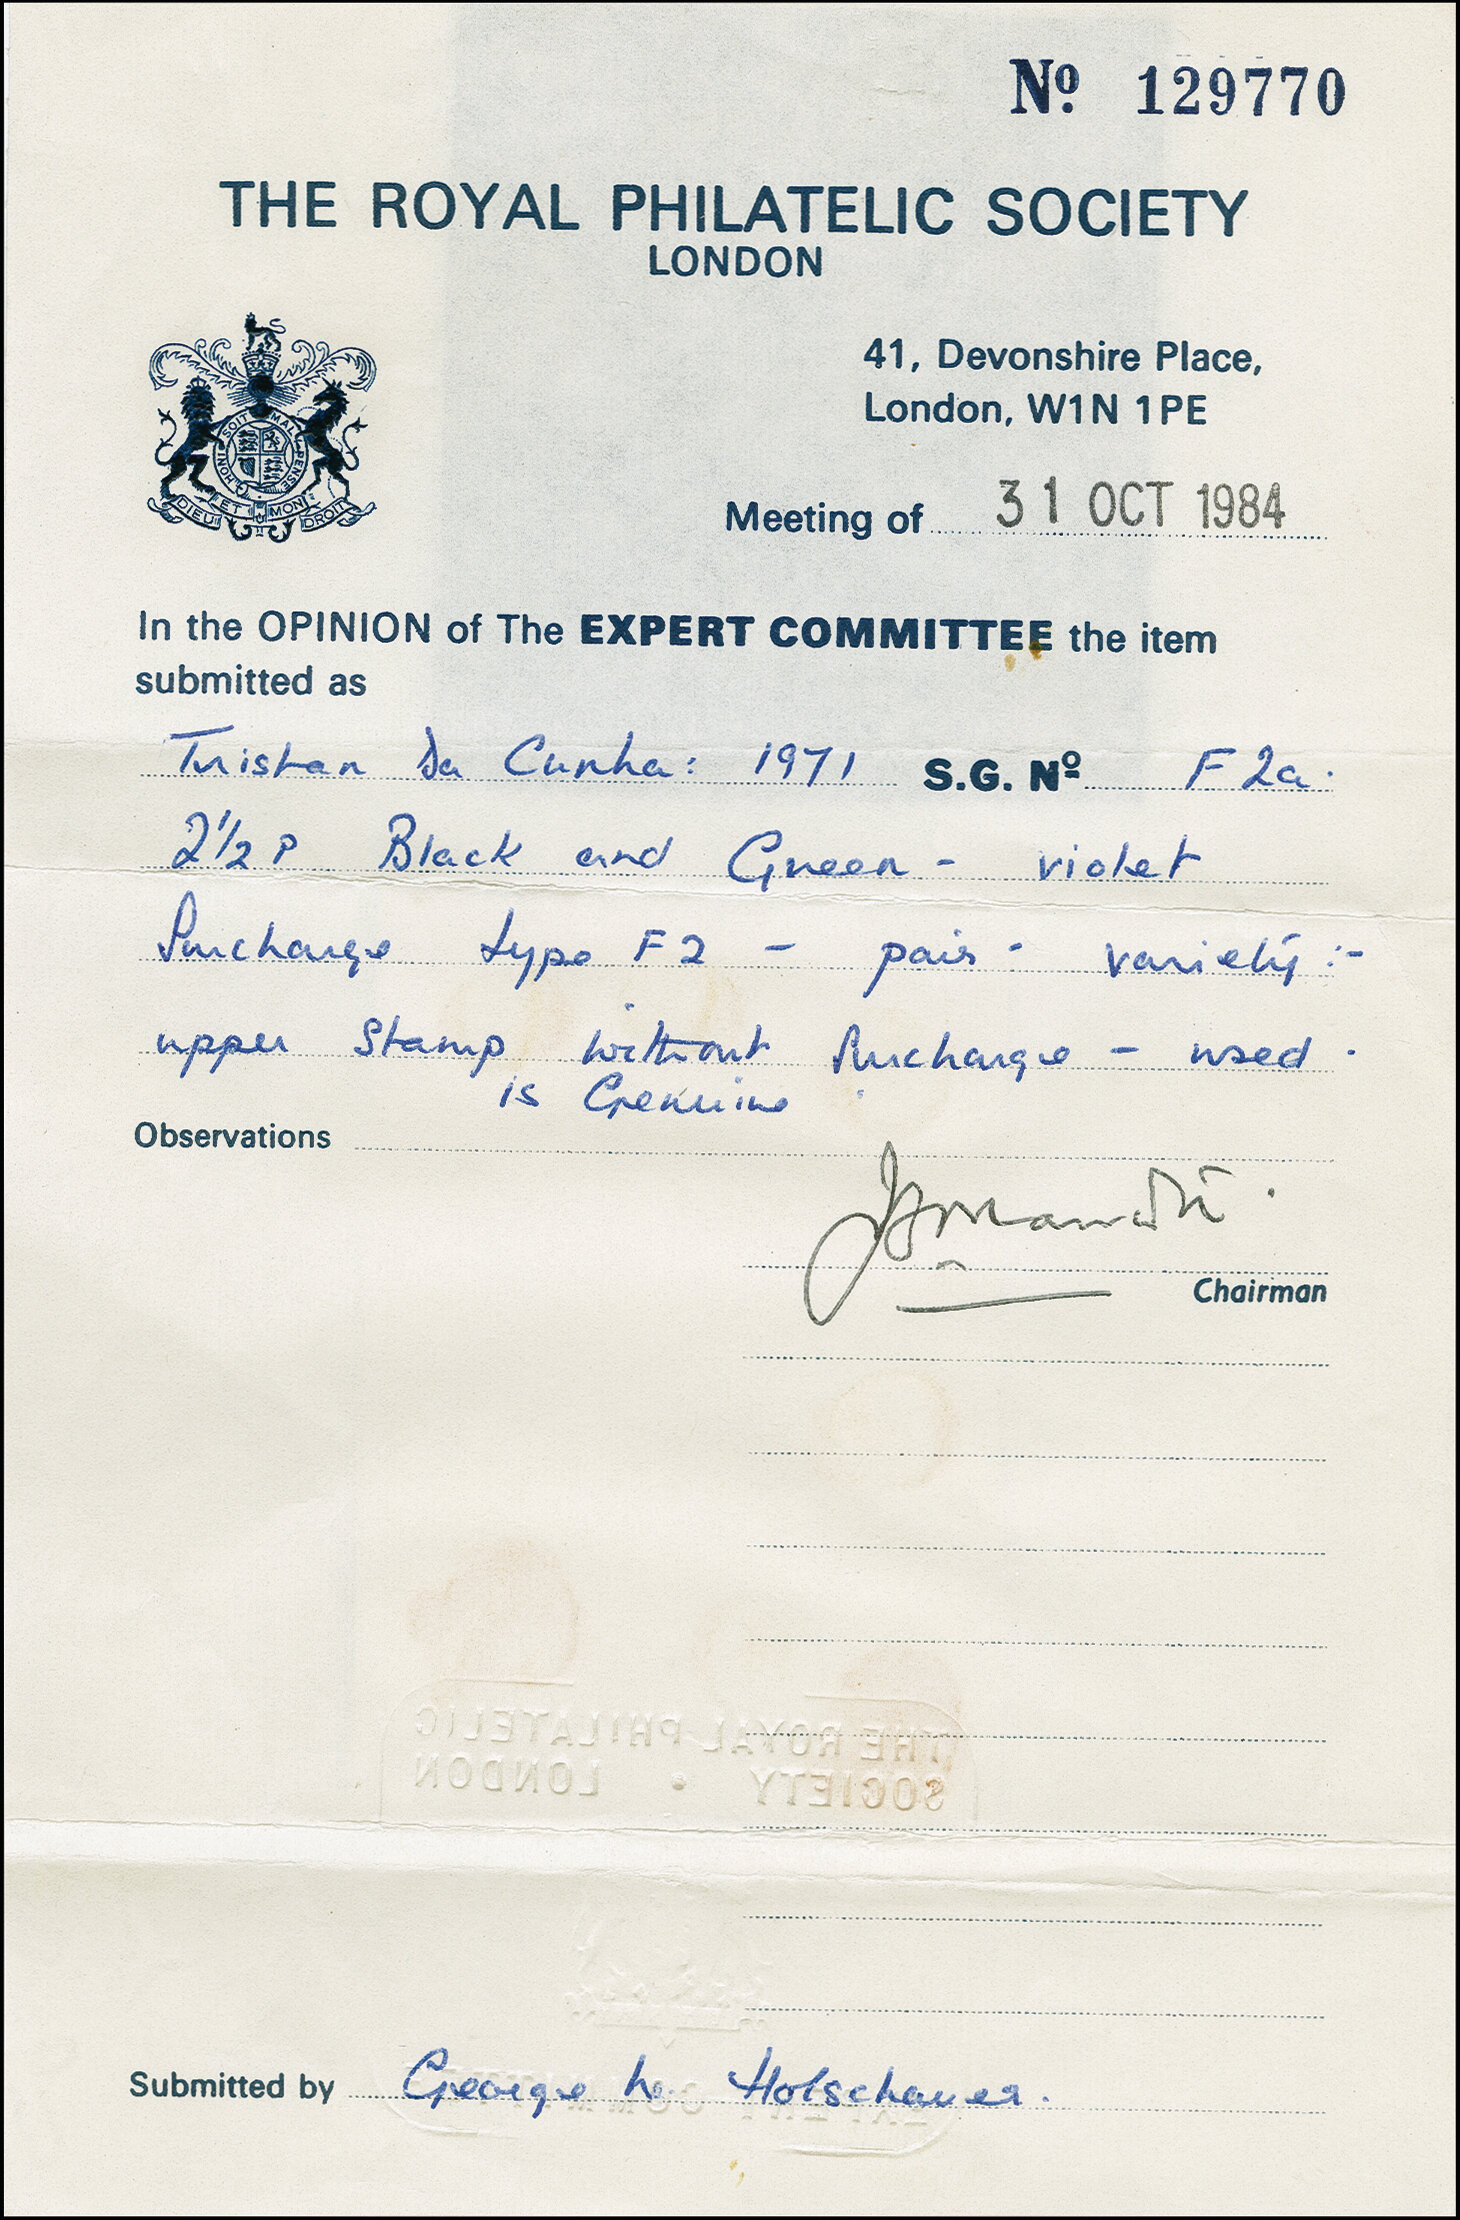 Nº 129770
THE ROYAL PHILATELIC SOCIETY
LONDON
41, Devonshire Place,
London, W1N 1PE
HONI SOIT QUI MAL Y PENSE
DIEU ET MON DROIT
Meeting of 31 OCT 1984
In the OPINION of The EXPERT COMMITTEE the item
submitted as
Tristan Da Cunha: 1971 S.G. Nº F2a.
2½P Black and Green - violet
Surcharge type F2 - pair - variety:-
upper Stamp without Surcharge - used.
is Genuine
Observations
Chairman
THE ROYAL PHILATELIC
SOCIETY • LONDON
Submitted by George Holschauer.
EXPERT COMMITTEE